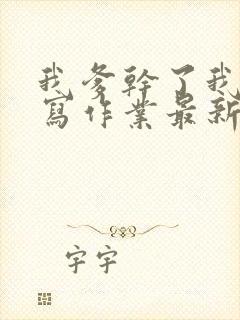 我爹幹了我
寫作業最新
字宇